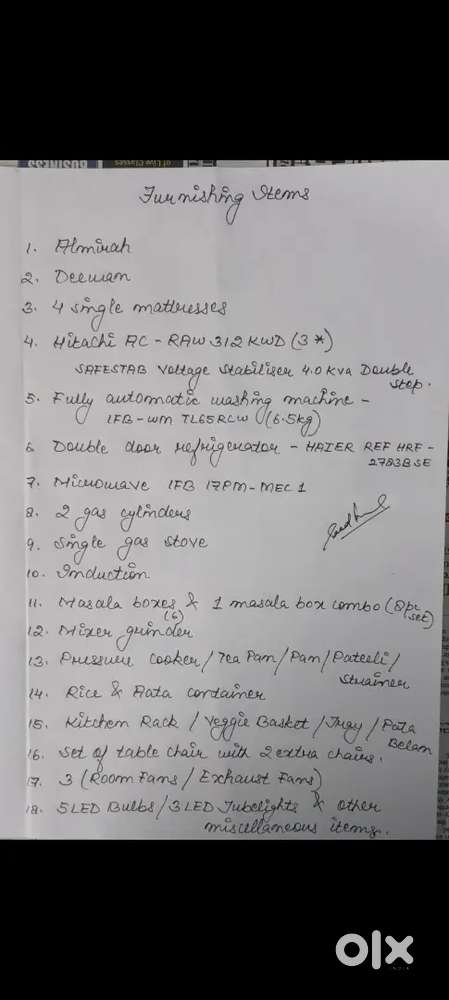 BUSINESS
of Live Classes
Furnishing Items
1. Almirah
2. Deewan
3. 4 single mattresses
4. Hitachi AC - RAW 312 KWD (3*)
SAFESTAB Voltage Stabiliser 4.0 Kva Double
Step.
5. Fully automatic washing machine -
IFB-WM TL65RCW (6.5kg)
6. Double door refrigerator - HAIER REF HRF-
2783BSE
7. Microwave IFB 17PM-MEC 1
8. 2 gas cylinders
9. Single gas stove
10. Induction
11. Masala boxes & 1 masala box combo (8pc
(6) set)
12. Mixer grinder
13. Pressure cooker/Tea Pan/Pan/Pateeli/
Strainer
14. Rice & Aata container
15. Kitchen Rack / Veggie Basket / Tray / Pata
Belan
16. Set of table chair with 2 extra chairs.
17. 3 (Room Fans / Exhaust Fans)
18. 5 LED Bulbs / 3 LED Tubelights & other
miscellaneous items.
olx
INDIA